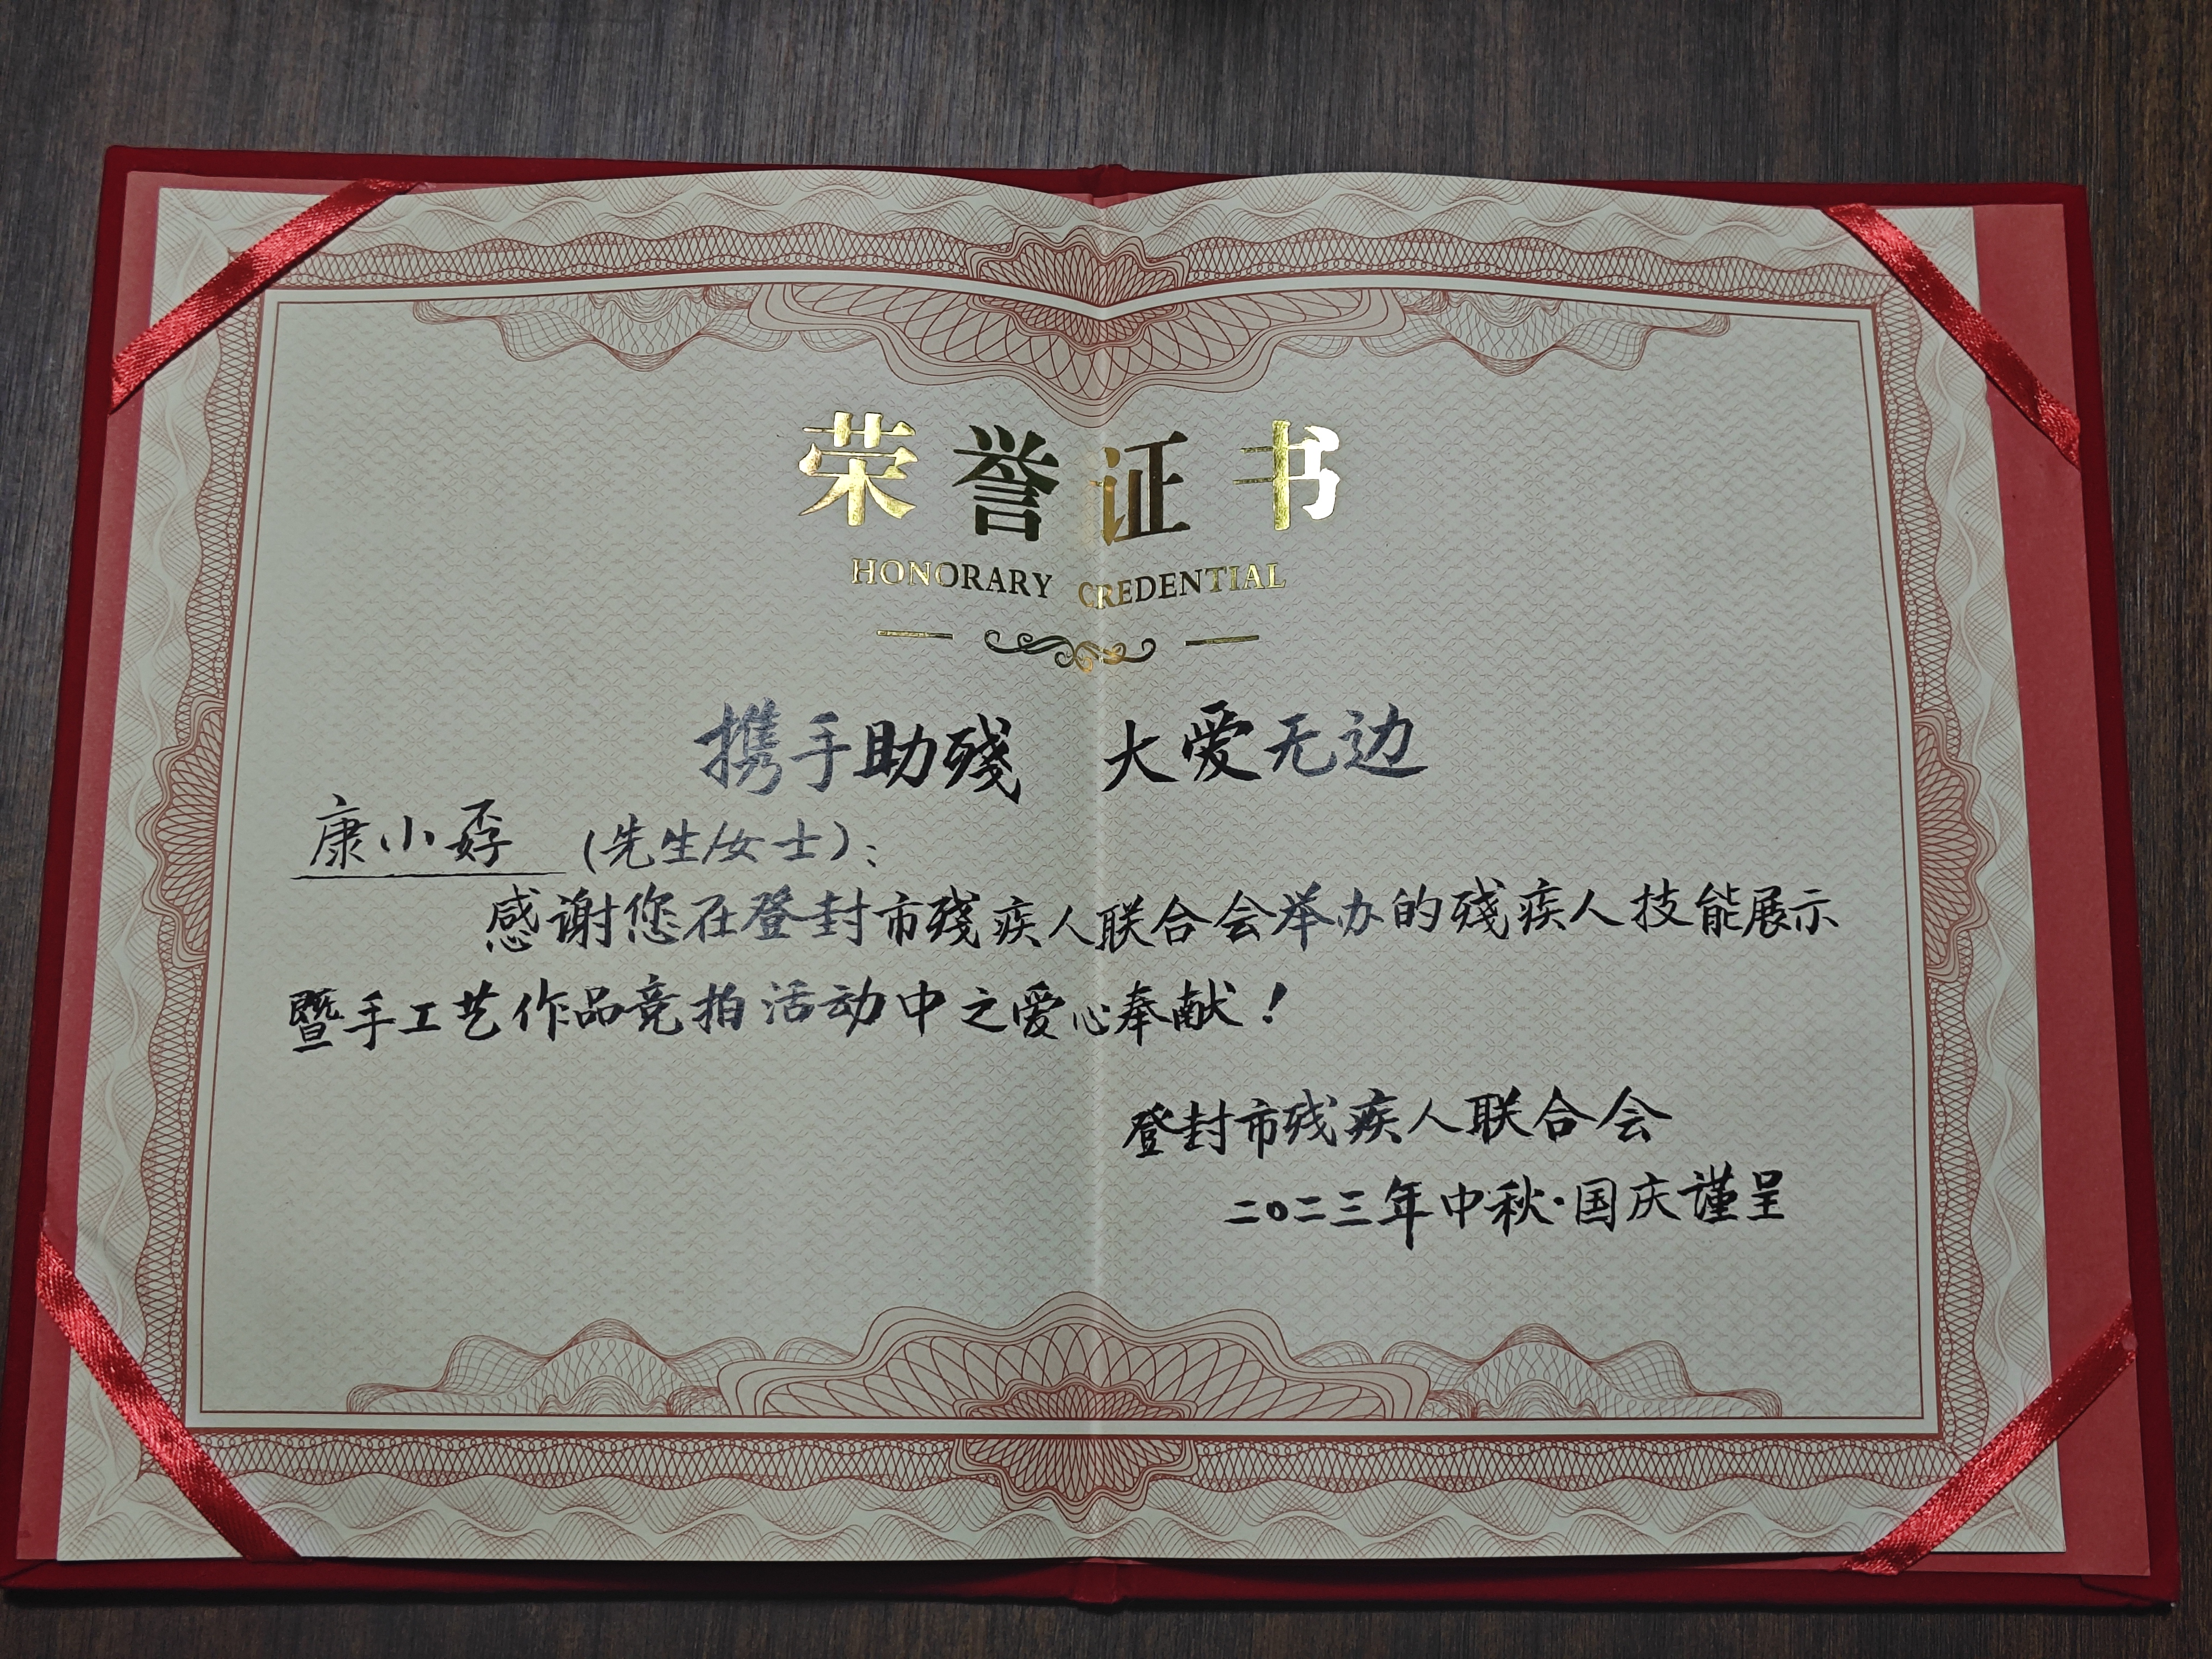 荣誉证书
HONORARY CREDENTIAL
携手助残 大爱无边
康小孬 (先生/女士):
感谢您在登封市残疾人联合会举办的残疾人技能展示
暨手工艺作品竞拍活动中之爱心奉献!
登封市残疾人联合会
二〇二三年中秋·国庆谨呈